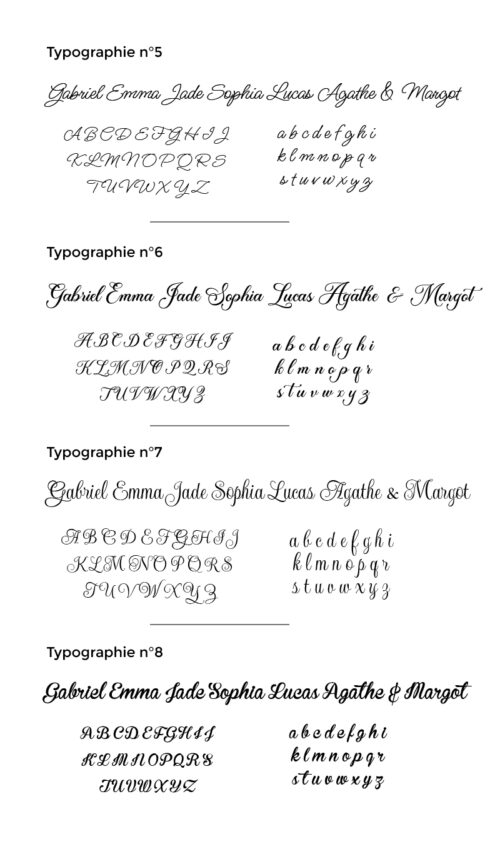 Typographie n°5
Gabriel Emma Jade Sophia Lucas Agathe & Margot
A B C D E F G H I J
K L M N O P Q R S
T U V W X Y Z
a b c d e f g h i
k l m n o p q r
s t u v w x y z
Typographie n°6
Gabriel Emma Jade Sophia Lucas Agathe & Margot
A B C D E F G H I J
K L M N O P Q R S
T U V W X Y Z
a b c d e f g h i
k l m n o p q r
s t u v w x y z
Typographie n°7
Gabriel Emma Jade Sophia Lucas Agathe & Margot
A B C D E F G H I J
K L M N O P Q R S
T U V W X Y Z
a b c d e f g h i
k l m n o p q r
s t u v w x y z
Typographie n°8
Gabriel Emma Jade Sophia Lucas Agathe & Margot
A B C D E F G H I J
K L M N O P Q R S
T U V W X Y Z
a b c d e f g h i
k l m n o p q r
s t u v w x y z